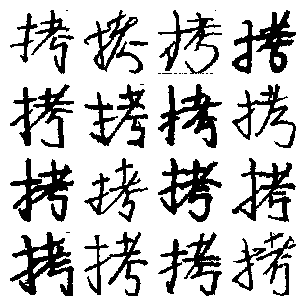 拷拷拷拷
拷拷拷拷
拷拷拷拷
拷拷拷拷